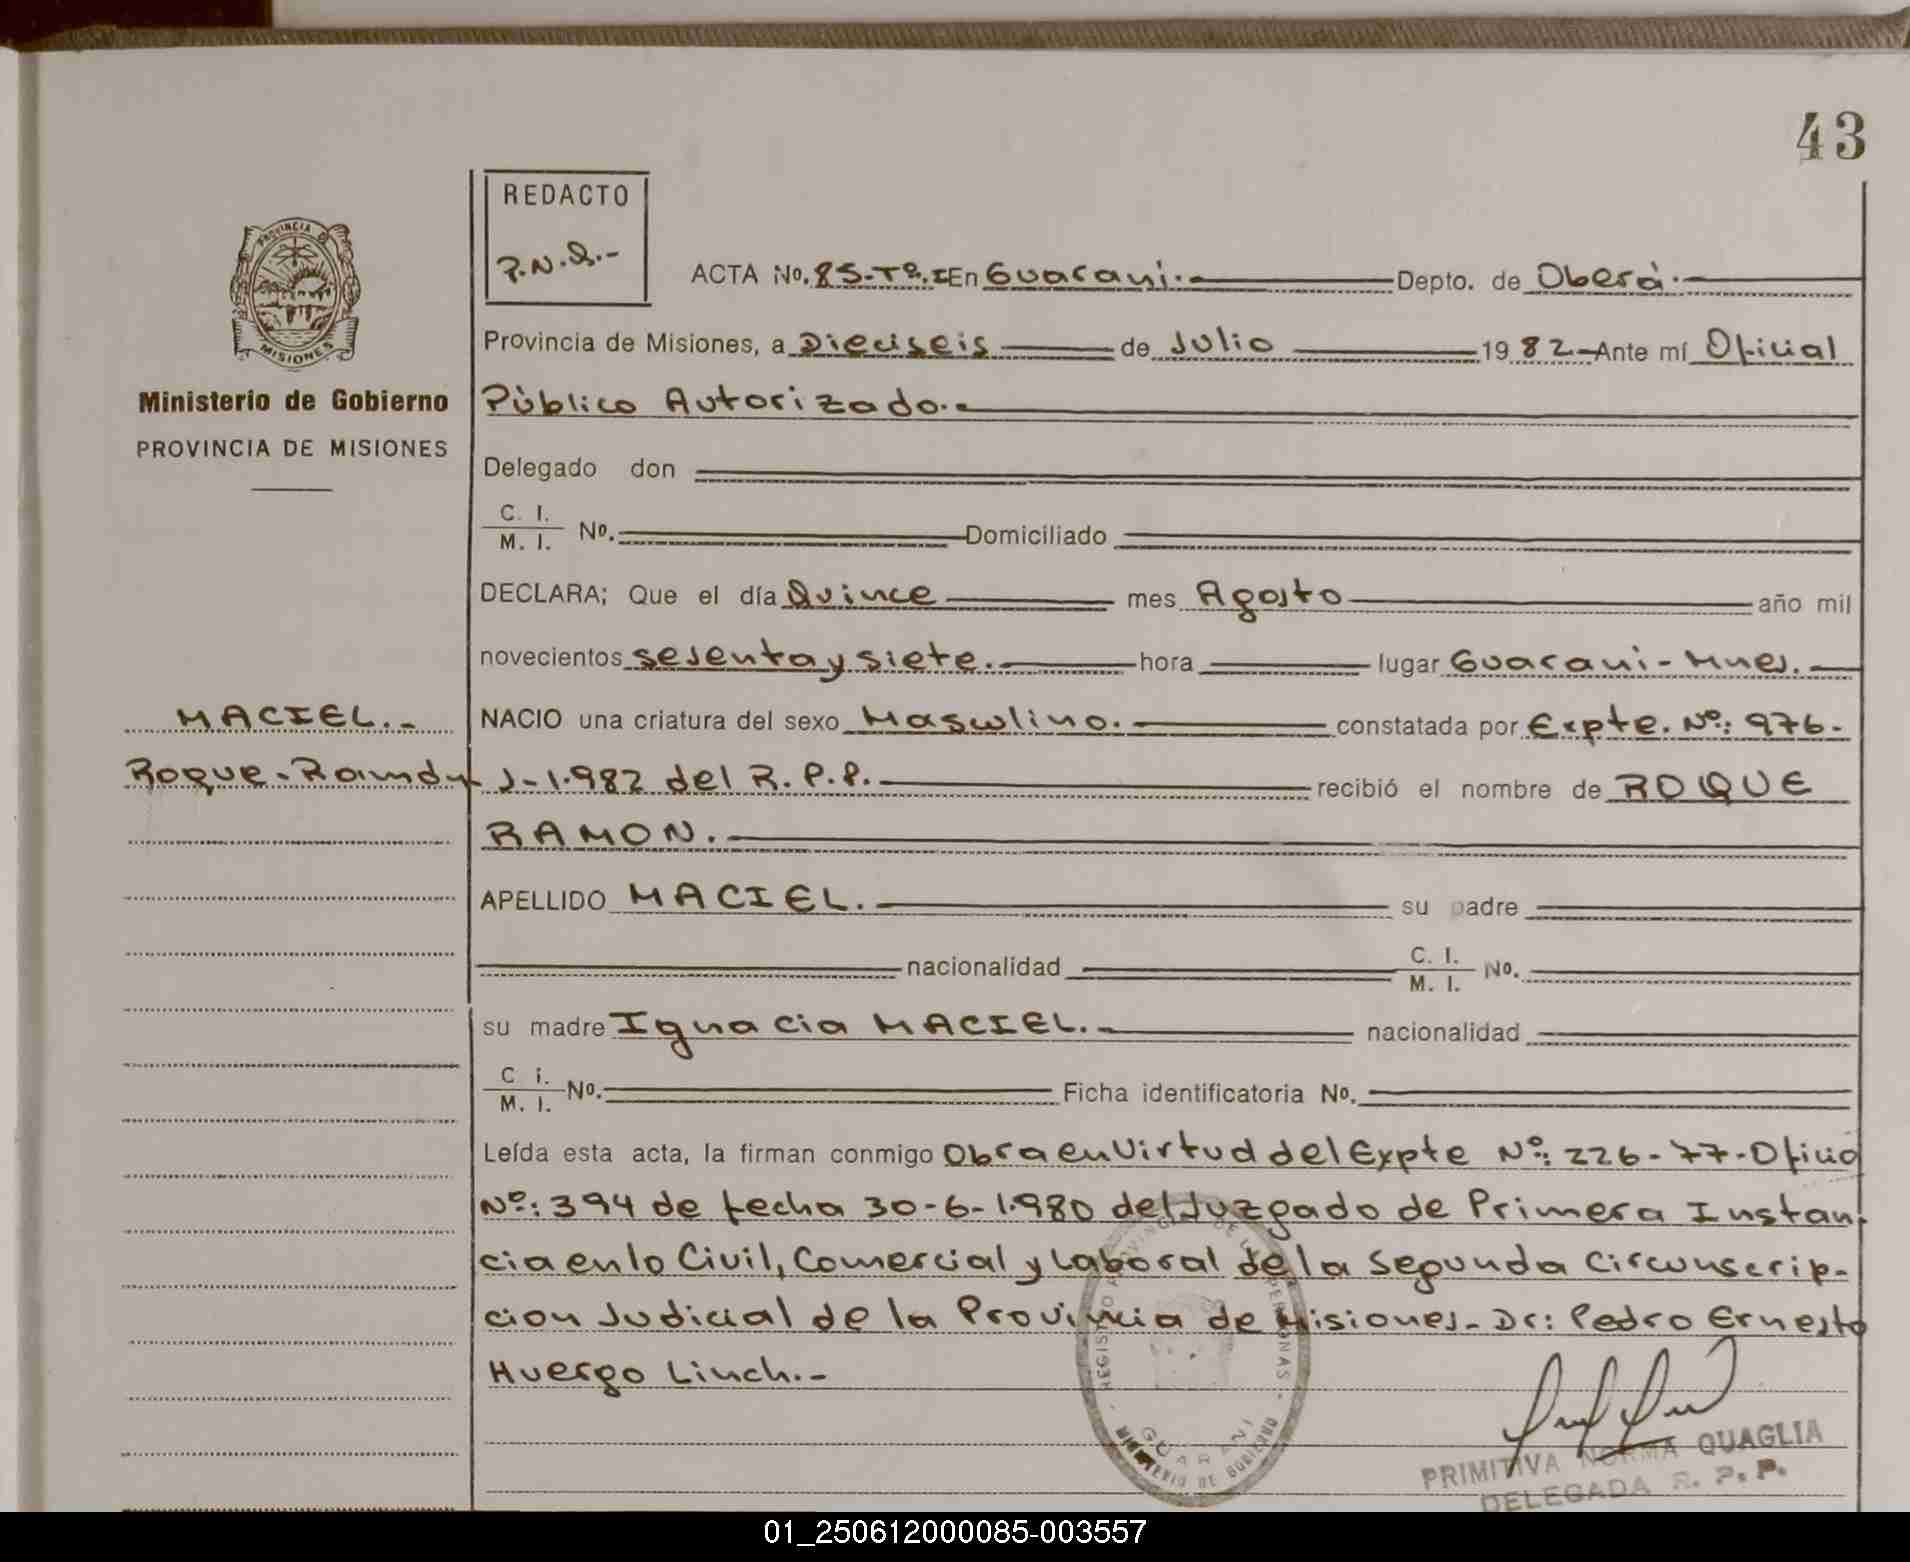 43
REDACTO
P.N.Q.-
PROVINCIA DE
MISIONES
ACTA No. 85-Tº.I En Guarani.- Depto. de Oberá.-
Provincia de Misiones, a Dieciseis de Julio 1982- Ante mí Oficial
Ministerio de Gobierno
Público Autorizado.-
PROVINCIA DE MISIONES
Delegado don
C. I.
M. I. No. Domiciliado
DECLARA; Que el día Quince mes Agosto año mil
novecientos sesenta y siete.- hora lugar Guarani-Mnes.-
MACIEL.-
NACIO una criatura del sexo Masculino.- constatada por Expte. Nº: 976-
Roque-Ramón
J-1.982 del R.P.P.- recibió el nombre de ROQUE
RAMON.-
APELLIDO MACIEL.- su padre
nacionalidad C. I.
M. I. No.
su madre Ignacia MACIEL.- nacionalidad
C i.
M. I. No. Ficha identificatoria No.
Leída esta acta, la firman conmigo Obra en Virtud del Expte Nº: 226-77-Oficio
Nº: 394 de fecha 30-6-1.980 del Juzgado de Primera Instan-
cia en lo Civil, Comercial y Laboral de la Segunda Circunscrip-
cion Judicial de la Provincia de Misiones- Dr: Pedro Ernesto
Huergo Linch.-
REGISTRO PROVINCIAL DE LAS PERSONAS
GUARANI
MINISTERIO DE GOBIERNO
PRIMITIVA NORMA QUAGLIA
DELEGADA R. P. P.
01_250612000085-003557